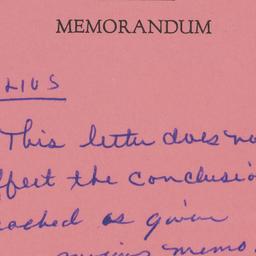 MEMORANDUM
LIUS
This letter does no
ffect the conclusio
eached as given
memo.